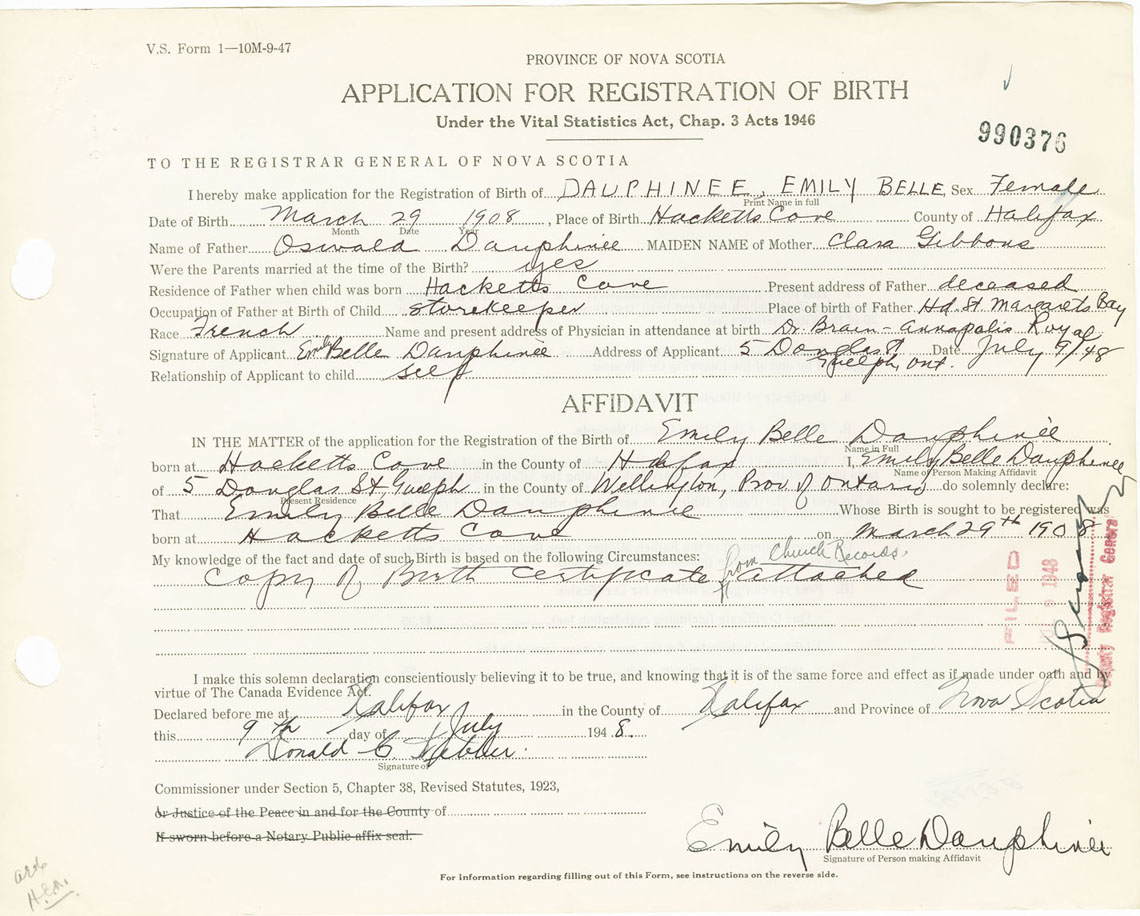 V.S. Form 1—10M-9-47
PROVINCE OF NOVA SCOTIA
APPLICATION FOR REGISTRATION OF BIRTH
Under the Vital Statistics Act, Chap. 3 Acts 1946
990376
TO THE REGISTRAR GENERAL OF NOVA SCOTIA
I hereby make application for the Registration of Birth of DAUPHINEE, EMILY BELLE Sex Female
Print Name in full
Date of Birth March 29 1908, Place of Birth Hacketts Cove County of Halifax
Month Date Year
Name of Father Oswald Dauphinee MAIDEN NAME of Mother Clara Gibbons
Were the Parents married at the time of the Birth? yes
Residence of Father when child was born Hacketts Cove Present address of Father deceased
Occupation of Father at Birth of Child storekeeper Place of birth of Father Hd. St. Margarets Bay
Race French Name and present address of Physician in attendance at birth Dr. Brain - Annapolis Royal
Signature of Applicant Emily Belle Dauphinee Address of Applicant 5 Douglas St Date July 9/48
Guelph, Ont.
Relationship of Applicant to child self
AFFIDAVIT
IN THE MATTER of the application for the Registration of the Birth of Emily Belle Dauphinee
Name in Full
born at Hacketts Cove in the County of Halifax I, Emily Belle Dauphinee
Name of Person Making Affidavit
of 5 Douglas St, Guelph in the County of Wellington, Prov. of Ontario do solemnly declare:
Present Residence
That Emily Belle Dauphinee Whose Birth is sought to be registered was
born at Hacketts Cove on March 29th 1908
My knowledge of the fact and date of such Birth is based on the following Circumstances:
from Church Records,
Copy of Birth Certificate attached
FILED
9 1948
Deputy Registrar General
I make this solemn declaration conscientiously believing it to be true, and knowing that it is of the same force and effect as if made under oath and by
virtue of The Canada Evidence Act.
Declared before me at Halifax in the County of Halifax and Province of Nova Scotia
this 9th day of July 1948.
Donald C.
Signature of
Commissioner under Section 5, Chapter 38, Revised Statutes, 1923,
or Justice of the Peace in and for the County of
If sworn before a Notary Public affix seal.
Emily Belle Dauphinee
Signature of Person making Affidavit
For information regarding filling out of this Form, see instructions on the reverse side.